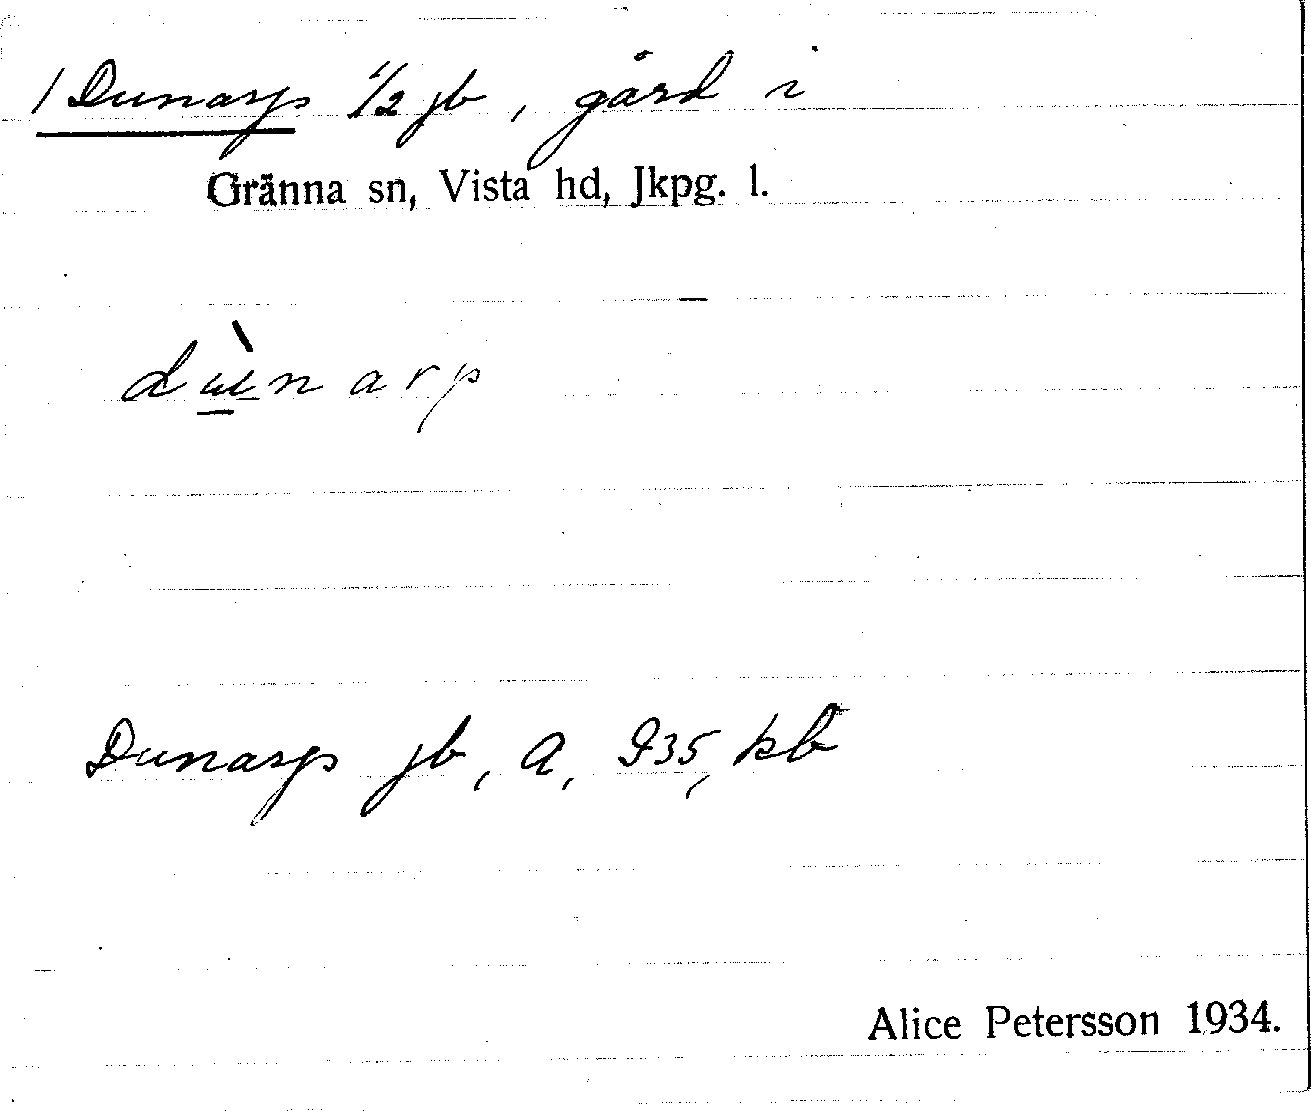 / Dunarp 1/2 jb, gård i
Gränna sn, Vista hd, Jkpg. l.
dùn arp
Dunarp jb, A, J35, kb
Alice Petersson 1934.